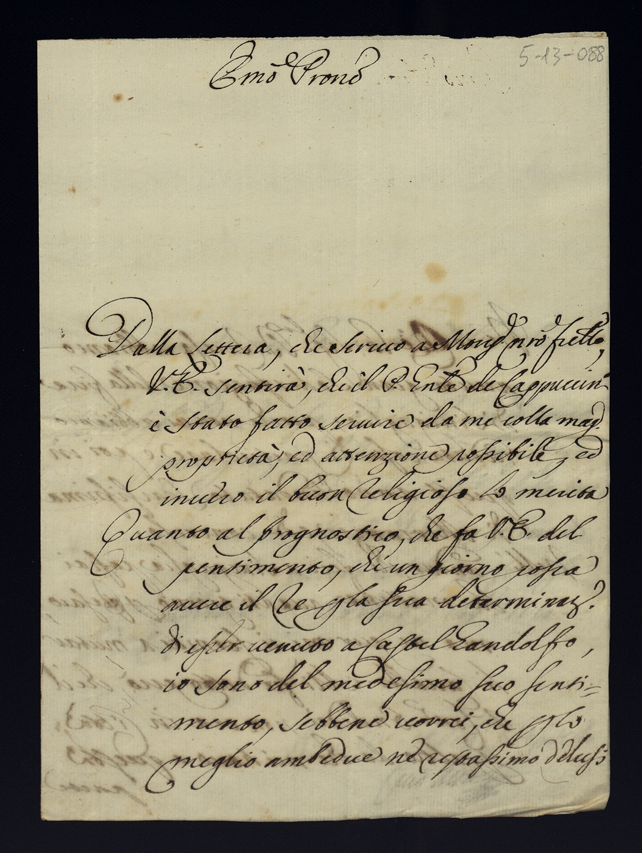 5-13-088
Emo e Prone
Dalla Lettera, che scrivo a Mong.e nro frello,
V.E. sentirà, che il P. Gnle de Cappuccini
è stato fatto servire da me colla magg.
proprietà, ed attenzione possibile, ed
invero il buon Religioso lo merita
Quanto al prognostico, che fa V.E. del
pentimento, che un giorno possa
avere il Re pla sua determinaz.e
di esser venuto a Castel Gandolfo,
io sono del medesimo suo senti=
mento, sebbene vorrei, che p lo
meglio ambedue ne restassimo delusi